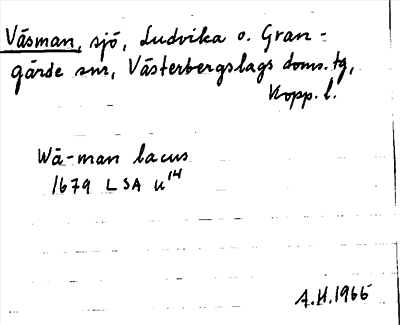 Väsman, sjö, Ludvika o. Gran=
gärde snr, Västerbergslags doms. tg,
Kopp. l.
Wä-man lacus
1679 LSA u¹⁴
A.H. 1966